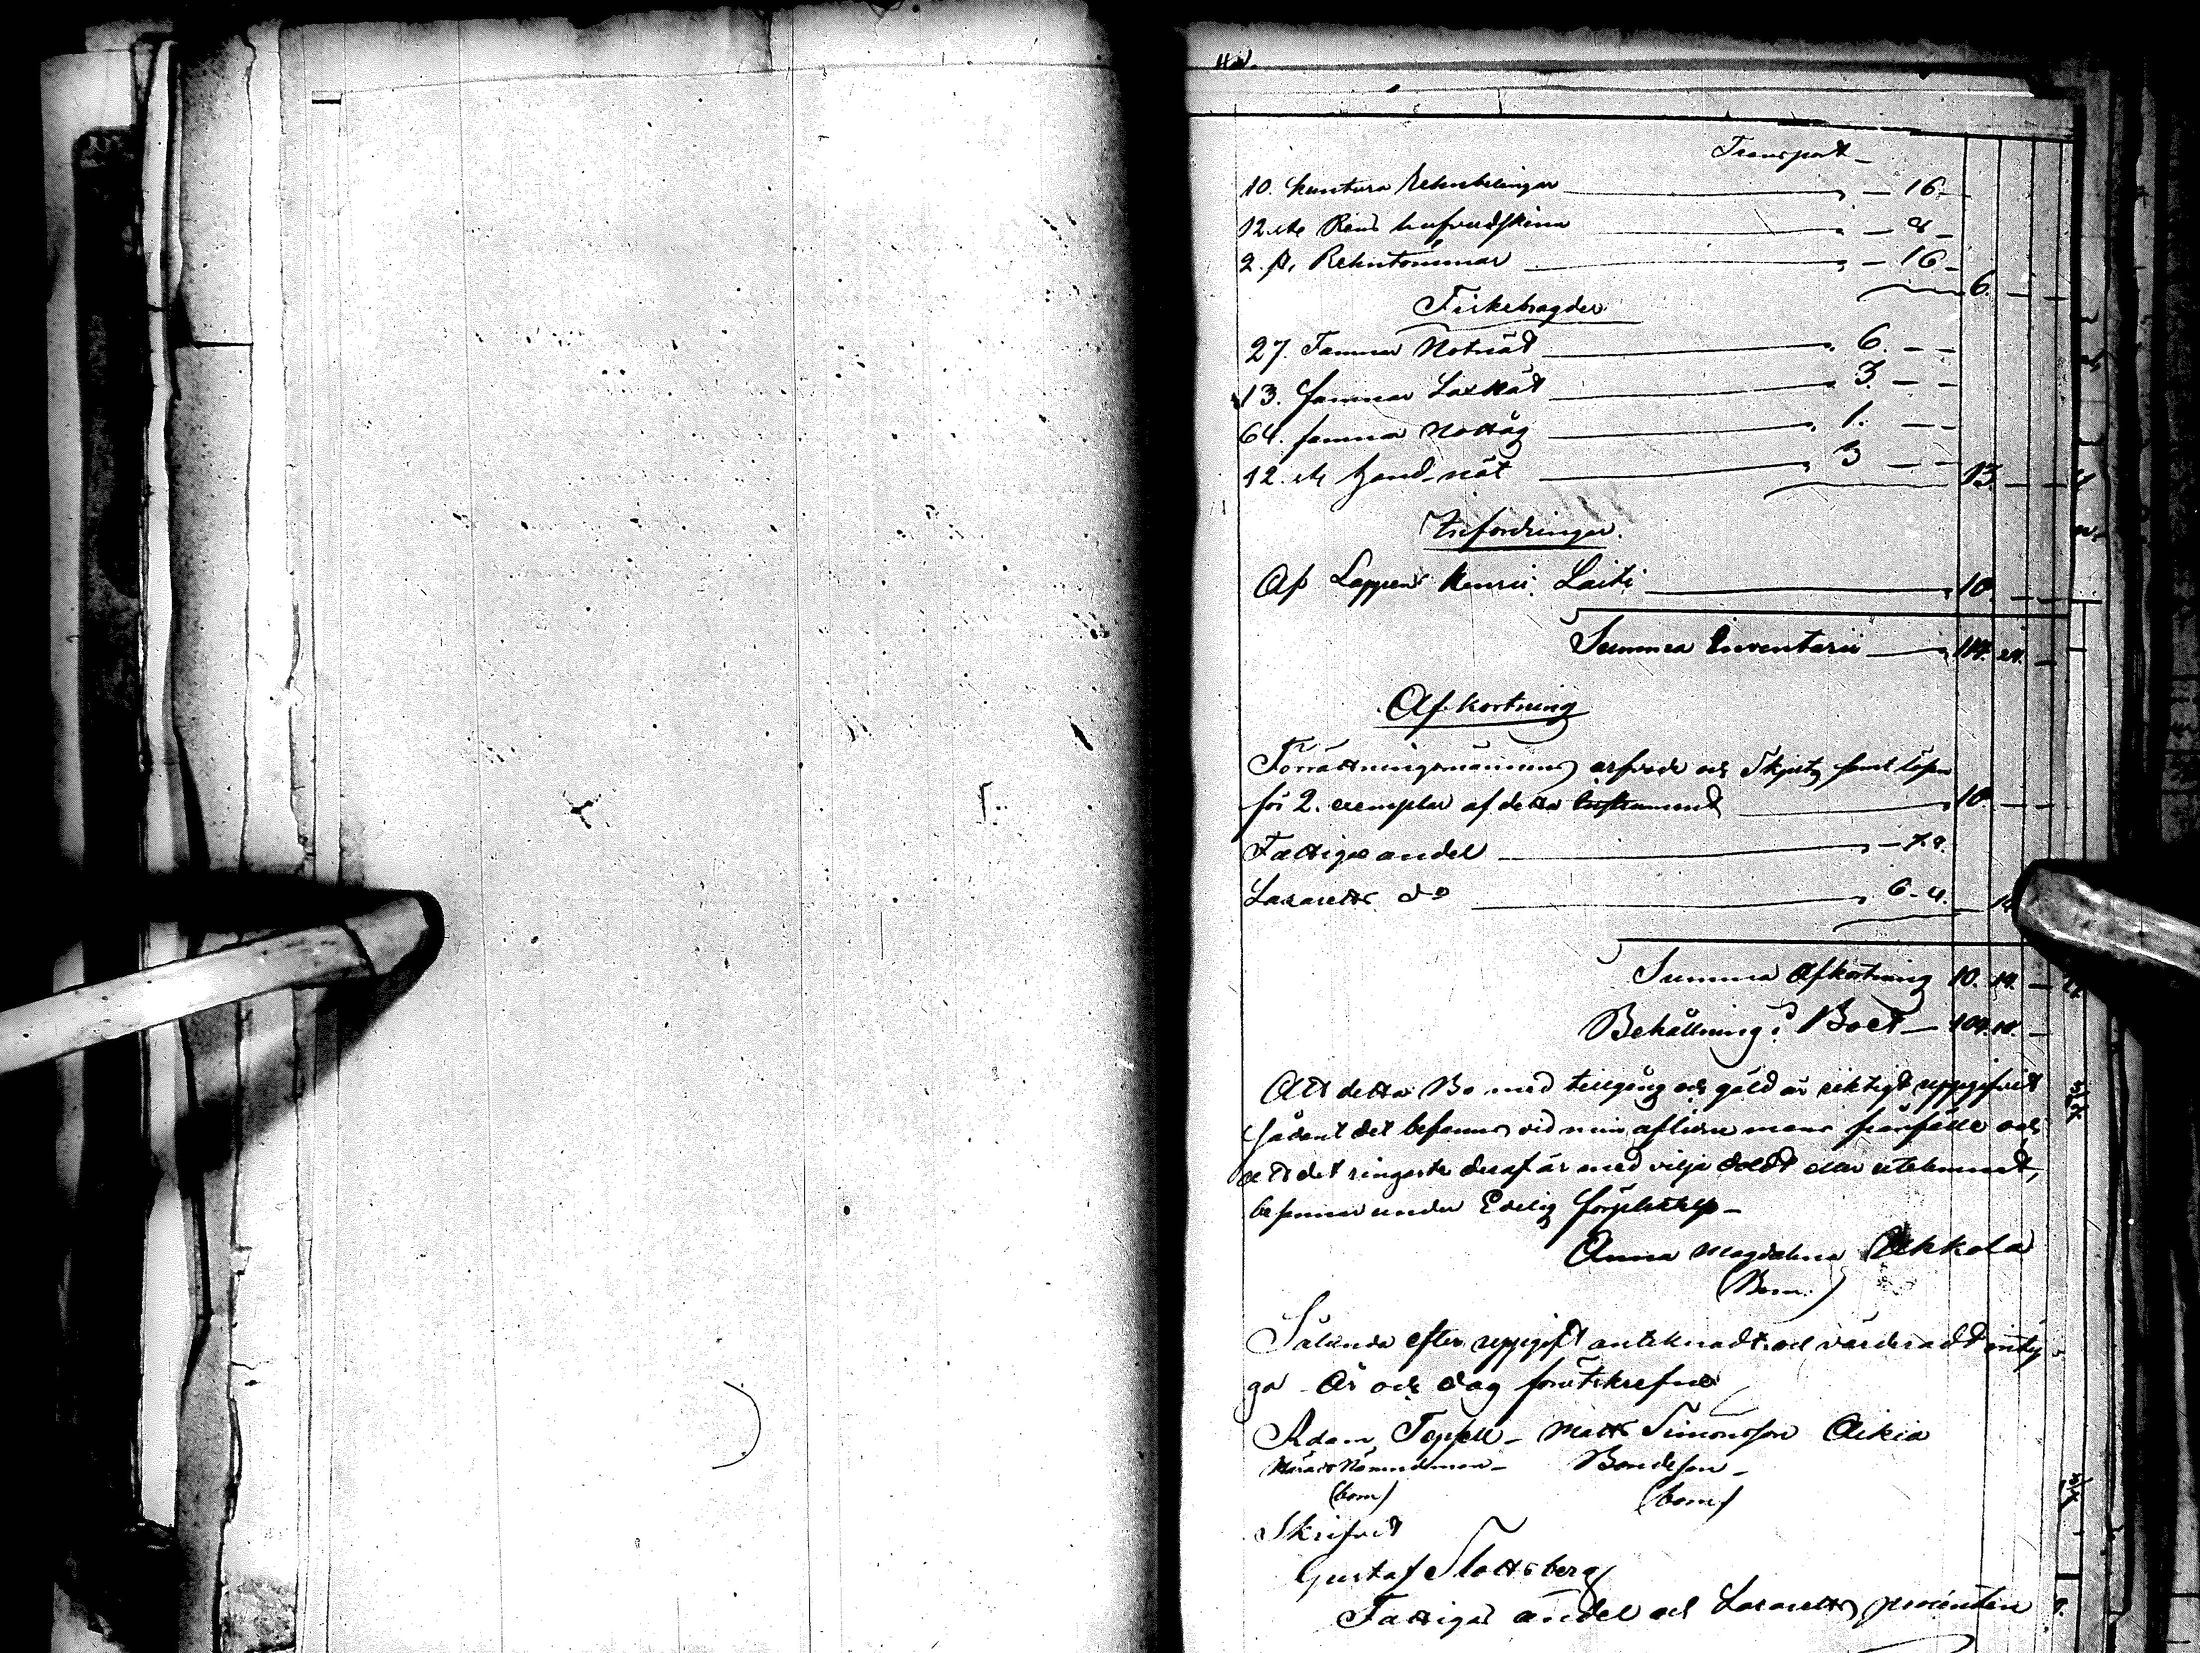 Transport
10. huntura Rehnbelingar — 16.
12. st. Rens hufvudskinn — 8 —
2. st. Rehntömmar — 16. —
6. — —
Fiskebragder
27. Famnar Notnät 6. — —
13. famnar Laxnät 3. — —
64. famnar Nottåg 1. — —
12. st. hand-nät 3 — — 13. — —
Utfordringar.
Af Lappen Henric Laiti 10. — —
Summa Inventarii 114. 24. —
Afkortning
Förrättningsmännens arfvode och Skjuts samt lösen
för 2. exemplar af detta Instrument 10 — —
Fattigas andel — 7. 8.
Lazaretts do 6. 4. — 14
Summa Afkortning 10. 14. —
Behållning i Boet — 104. 10. —
Att detta Bo med tillgång och gäld är riktigt uppgifvet
sådant det befanns vid min aflidne mans frånfälle och
att det ringaste deraf är med vilja doldt eller utelemnat,
under Edelig förplicktelse —
Anna Magdalena Akkola
(Bom.)
Sålunda efter uppgift anteknadt och värderadt inty-
ga År och dag förutskrefne
Adam Toppell — Matts Simonsson Aikia
Härads Nämndeman — Bondeson —
(bom) (bom)
Skrifvit
Gustaf Slottsberg
Fattigas andel och Lazaretts procenten